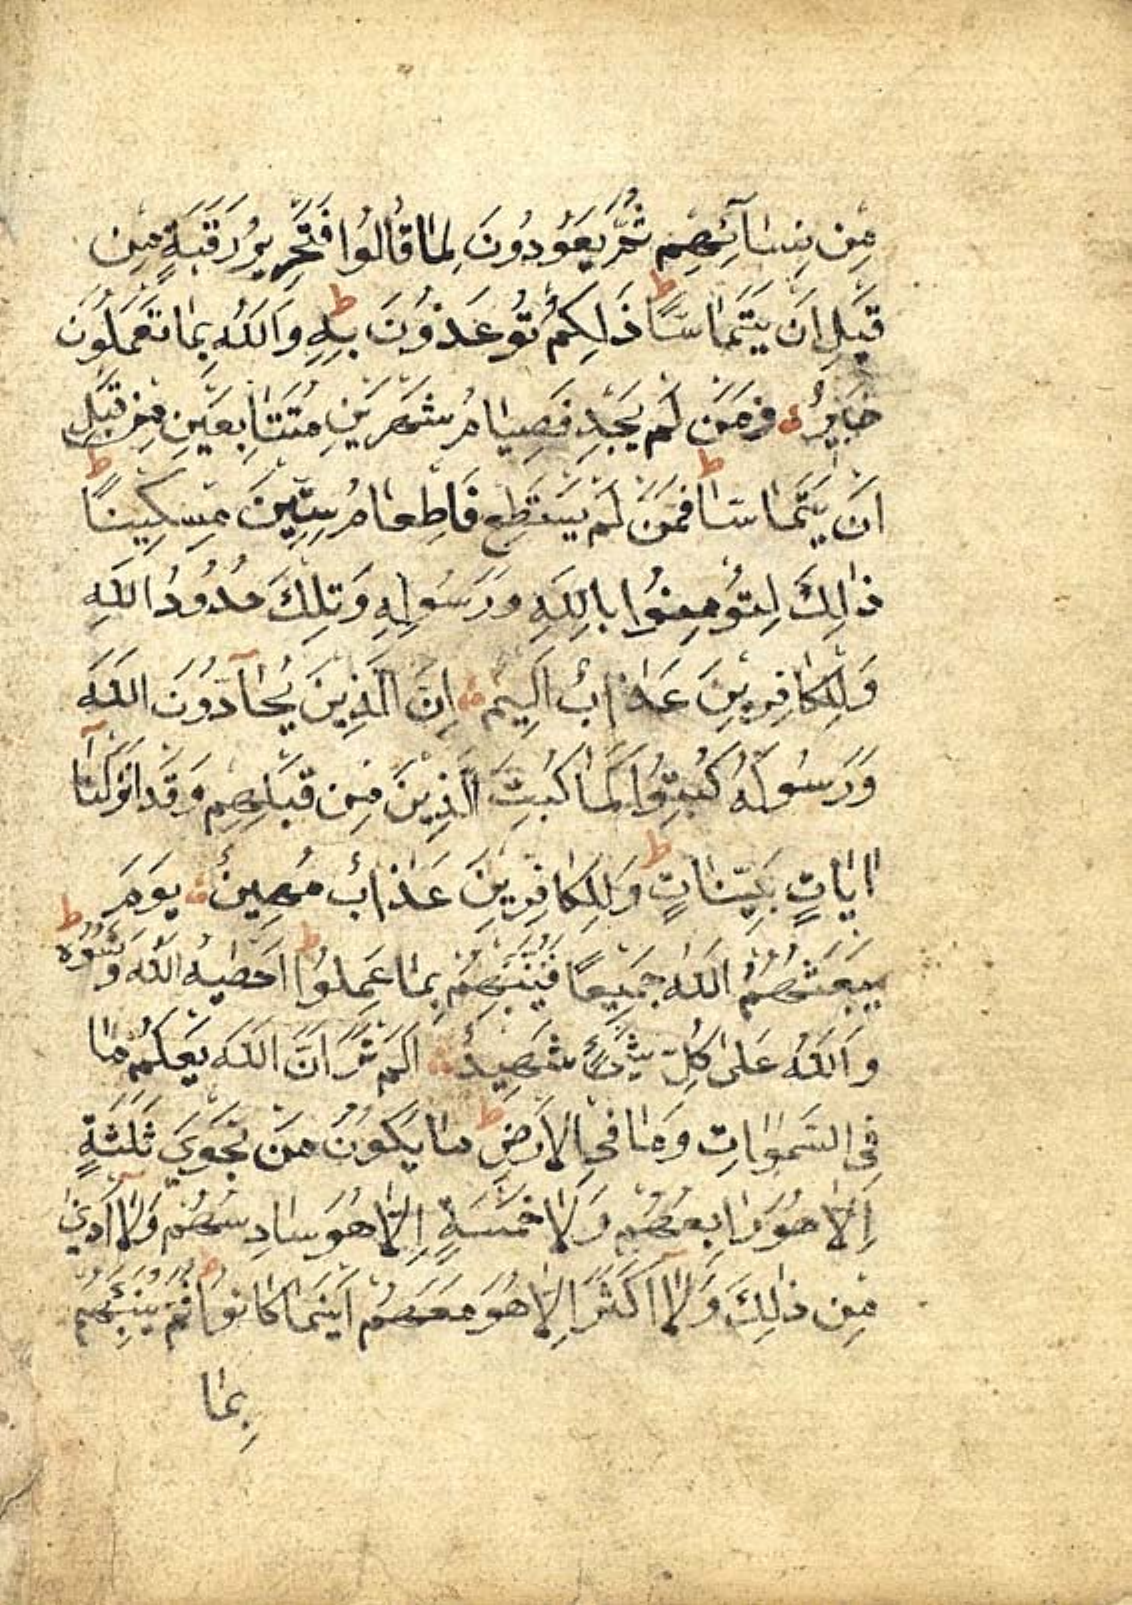 مِن نِسَآئِهِم ثُمَّ يَعُودُونَ لِمَا قَالُوا فَتَحْرِيرُ رَقَبَةٍ مِن
قَبْلِ اَنْ يَتَمَاسَّا ط ذَلِكُمْ تُوعَذُونَ بِهِ ط وَاللهُ بِمَا تَعْمَلُونَ
خَبِيرٌ فَمَنْ لَمْ يَجِدْ فَصِيَامُ شَهْرَيْنِ مُتَتَابِعَيْنِ مِن قَبْلِ
اَنْ يَتَمَاسَّا ط فَمَنْ لَمْ يَسْتَطِعْ فَاِطْعَامُ سِتِّينَ مِسْكِينًا ط
ذٰلِكَ لِتُؤْمِنُوا بِاللهِ وَرَسُولِهِ وَتِلْكَ حُدُودُ اللهِ
وَلِلْكَافِرِينَ عَذَابٌ اَلِيمٌ اِنَّ الَّذِينَ يُحَآدُّونَ اللهَ
وَرَسُولَهُ كُبِتُوا كَمَا كُبِتَ الَّذِينَ مِن قَبْلِهِمْ وَقَدْ اَنْزَلْنَآ
اٰيَاتٍ بَيِّنَاتٍ ط وَلِلْكَافِرِينَ عَذَابٌ مُهِينٌ يَوْمَ
يَبْعَثُهُمُ اللهُ جَمِيعًا فَيُنَبِّئُهُمْ بِمَا عَمِلُوا ط اَحْصٰيهُ اللهُ وَنَسُوْهُ ط
وَاللهُ عَلٰى كُلِّ شَيْءٍ شَهِيدٌ اَلَمْ تَرَ اَنَّ اللهَ يَعْلَمُ مَا
فِى السَّمٰوَاتِ وَمَا فِى الْاَرْضِ ط مَا يَكُونُ مِنْ نَجْوَي ثَلٰثَةٍ
اِلَّا هُوَ رَابِعُهُمْ وَلَا خَمْسَةٍ اِلَّا هُوَ سَادِسُهُمْ وَلَآ اَدْنٰى
مِن ذٰلِكَ وَلَآ اَكْثَرَ اِلَّا هُوَ مَعَهُمْ اَيْنَمَا كَانُوا ط ثُمَّ يُنَبِّئُهُمْ
بِمَا